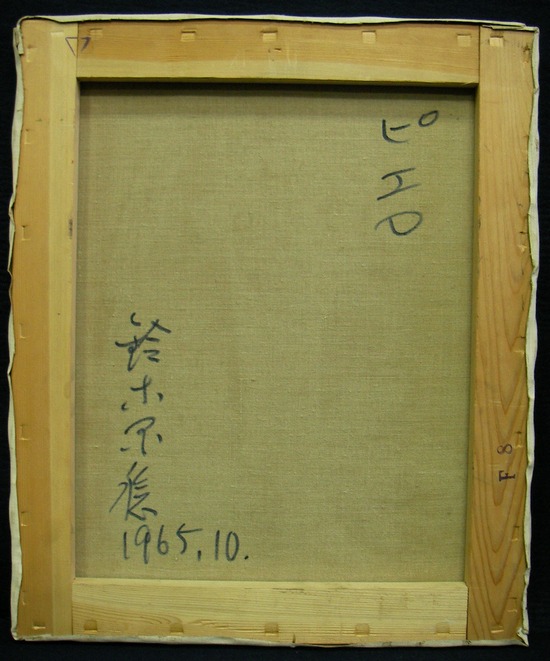 ピエロ
鈴木
1965.10.
F8